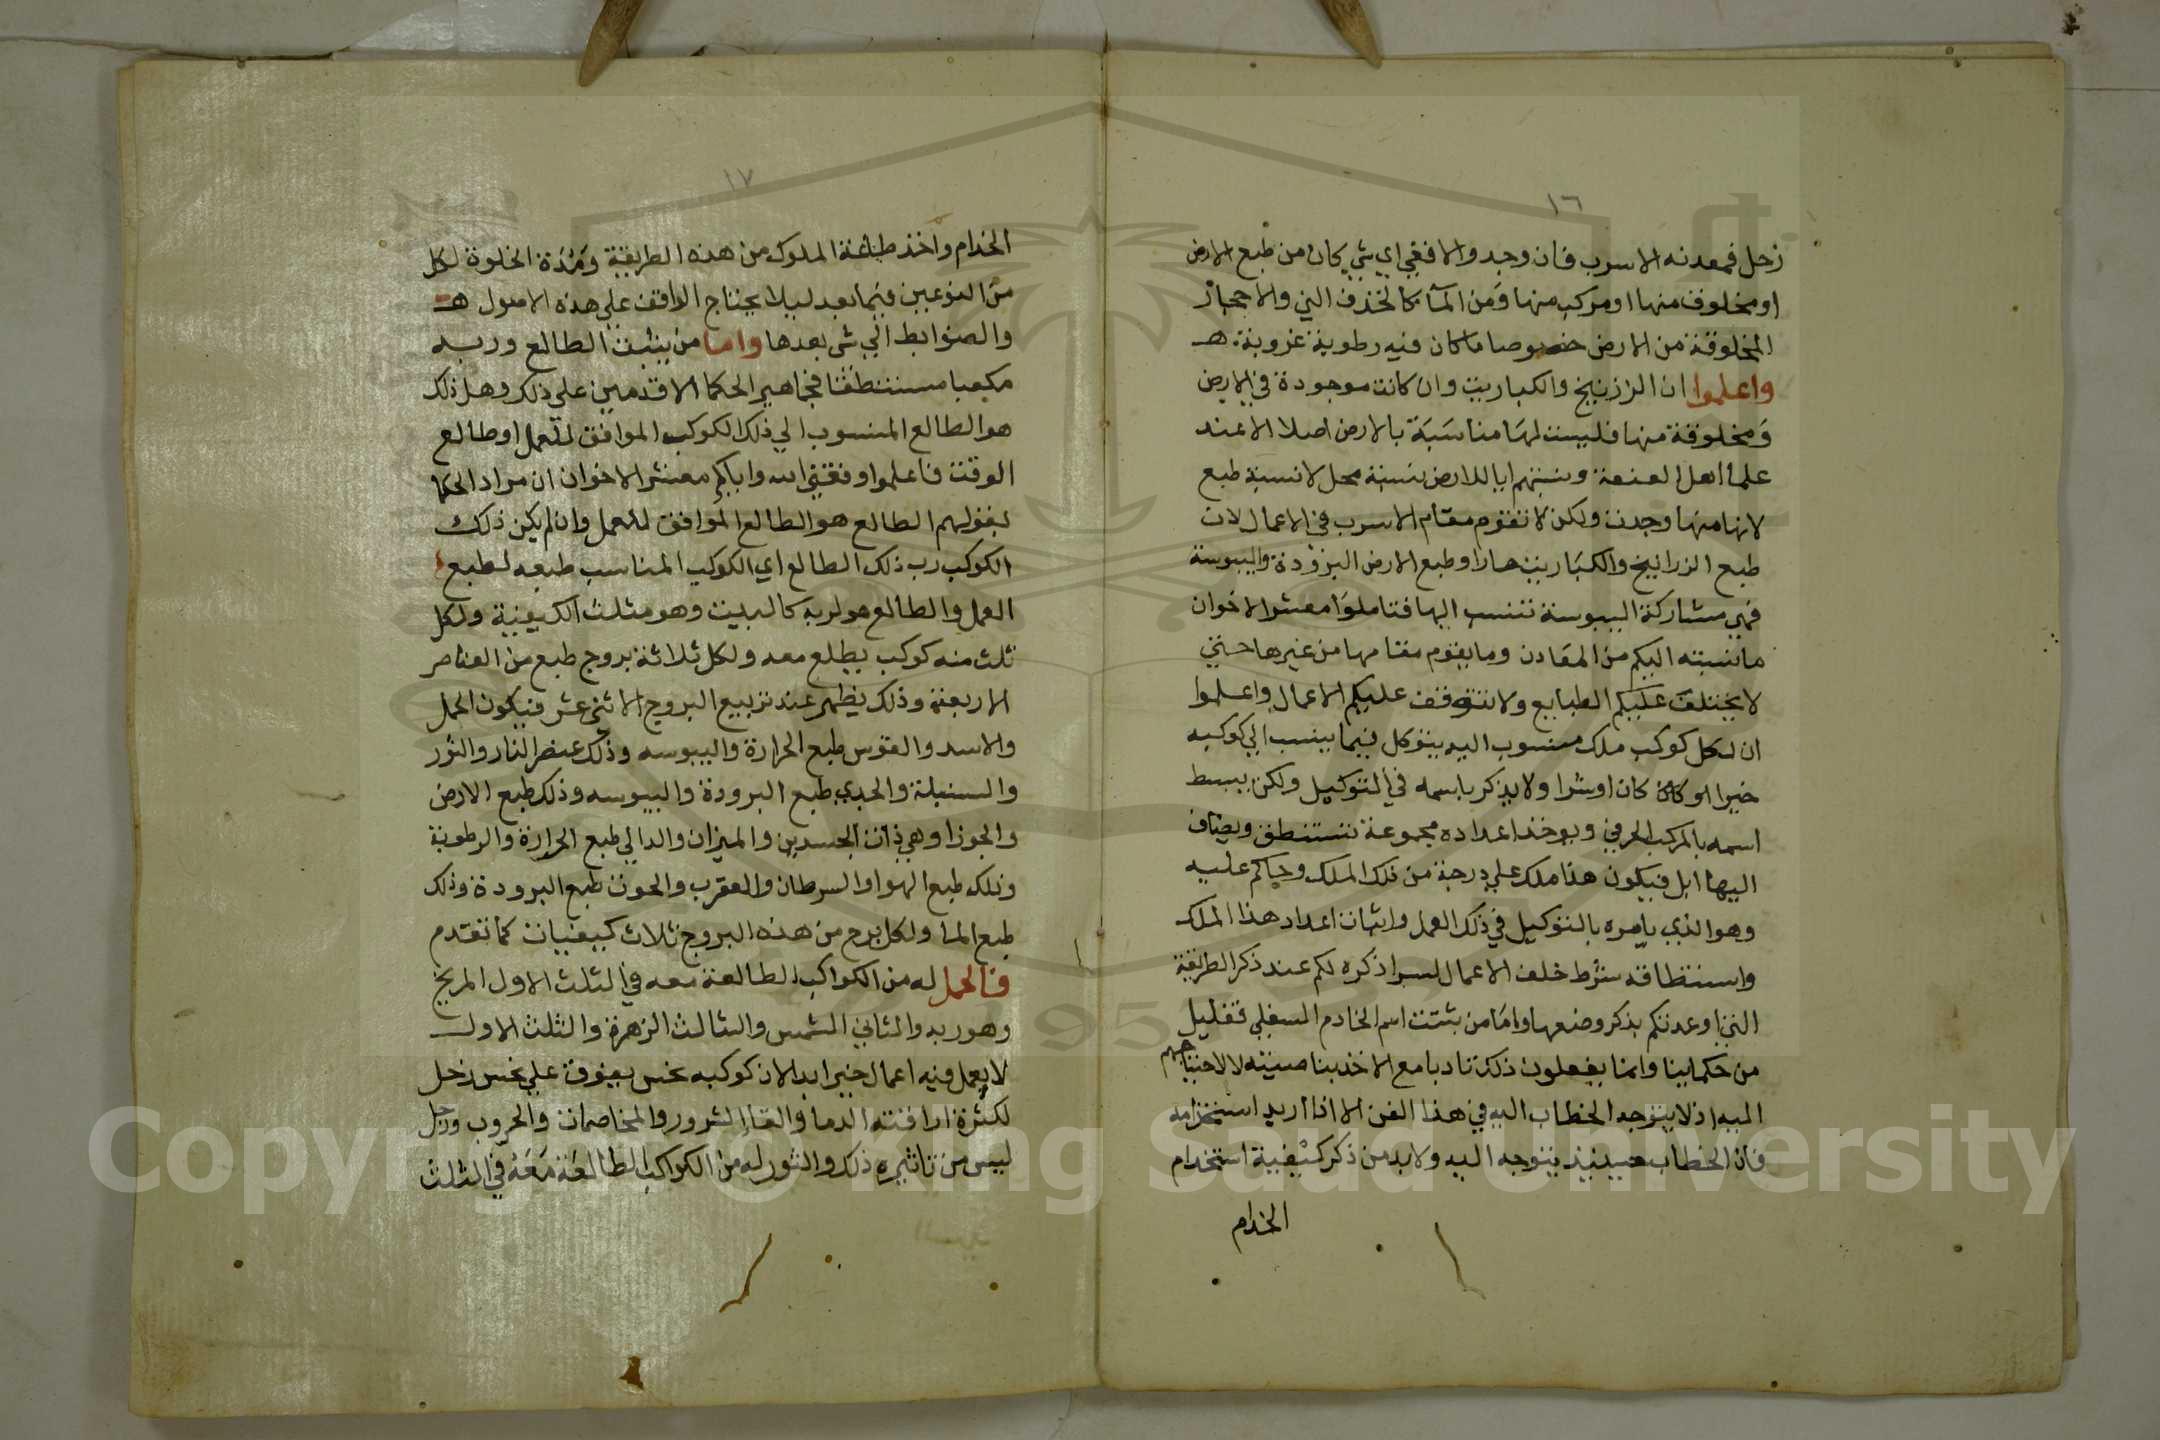 ١٦
زحل فمعدنه الاسرب فان وجد والا ففي اي شي كان من طبع الارض
او مخلوف منها او مركب منها ومن المآ كالخذف الني والاحجار
المخلوقة من الارض خصوصا ما كان فيه رطوبة غروبة. هـ
واعلموا ان الرازنيخ والكباريت وان كانت موجودة في الارض
ومخلوقة منها فليست لها مناسبة بالارض اصلا الا عند
علما اهل الصنعة ونسبتهم اياها للارض نسبة محل لا نسبة طبع
لانها منها وجدت ولكن لا تقوم مقام الاسرب في الاعمال لان
طبع الزرانيخ والكباريت حارا وطبع الارض البرودة واليبوسة
فهي مشاركة اليبوسة تنسب اليها فتاملوا معشر الاخوان
ما نسبته اليكم من المعادن وما يقوم مقامها من غيرها حتي
لا يختلف عليكم الطبايع ولا تتوقف عليكم الاعمال واعلموا
ان لكل كوكب ملك منسوب اليه يتوكل فيما ينسب الي كوكبه
خيرا كان او شرا ولا يذكر باسمه في التوكيل ولكن يبسط
اسمه بالمركب الحرفي ويوخذ اعداده مجموعة تستنطق ويضاف
اليها ايل فيكون هذا ملك علي درجة من ذلك الملك وحاكم عليه
وهو الذي يامره بالتوكيل في ذلك العمل واثبات اعداد هذا الملك
واستنطاقه شرط خلف الاعمال لسر اذكره لكم عند ذكر الطريقة
التي اوعدتكم بذكر وضعها واما من يثبت اسم الخادم السفلي فقليل
من حكماينا وانما يفعلون ذلك تادبا مع الاخذ بنا صيته لا لاحتياجهم
اليه اذ لا يتوجه الخطاب اليه في هذا الفن الا اذا اريد استخدامه
فان الخطاب حينيذ يتوجه اليه ولا بد من ذكر كيفية استخدام
الخدام
١٧
الخدام واخذ طاعة الملوك من هذه الطريقة ومدة الخلوة لكل
من النوعين فيما بعد ليلا يحتاج الواقف علي هذه الاصول هـ
والضوابط الي شي بعدها واما من يثبت الطالع وربه
مكعبا مستنطقا فجماهير الحكما الاقدمين علي ذلك وهل ذلك
هو الطالع المنسوب الي ذلك الكوكب الموافق للعمل او طالع
الوقت فاعلموا وفقني الله واياكم معشر الاخوان ان مراد الحكما
بقولهم الطالع هو الطالع الموافق للعمل وان لم يكن ذلك
الكوكب رب ذلك الطالع اي الكوكب المناسب طبعه لطبع
العمل والطالع هو لربه كالبيت وهو مثلث الكيفية ولكل
ثلث منه كوكب يطلع معه ولكل ثلاثة بروج طبع من العناصر
الاربعة وذلك يظهر عند تربيع البروج الاثني عشر فيكون الحمل
والاسد والقوس طبع الحرارة واليبوسه وذلك عنصر النار والثور
والسنبلة والجدي طبع البرودة واليبوسه وذلك طبع الارض
والجوزا وهي ذات الجسدين والميزان والدالي طبع الحرارة والرطوبة
وذلك طبع الهوا والسرطان والعقرب والحوت طبع البرودة وذلك
طبع الما ولكل برج من هذه البروج ثلاث كيفيات كما تقدم
فالحمل له من الكواكب الطالعة معه في الثلث الاول المريخ
وهو ربه والثاني الشمس والثالث الزهرة والثلث الاول
لا يعمل فيه اعمال خير ابدا لان كوكبه نحس يفوق علي نحس زحل
لكثرة اراقته الدما والقا الشرور والمخاصمات والحروب وزحل
ليس من تاثيره ذلك والثور له من الكواكب الطالعة معه في الثلث
Copyright © King Saud University